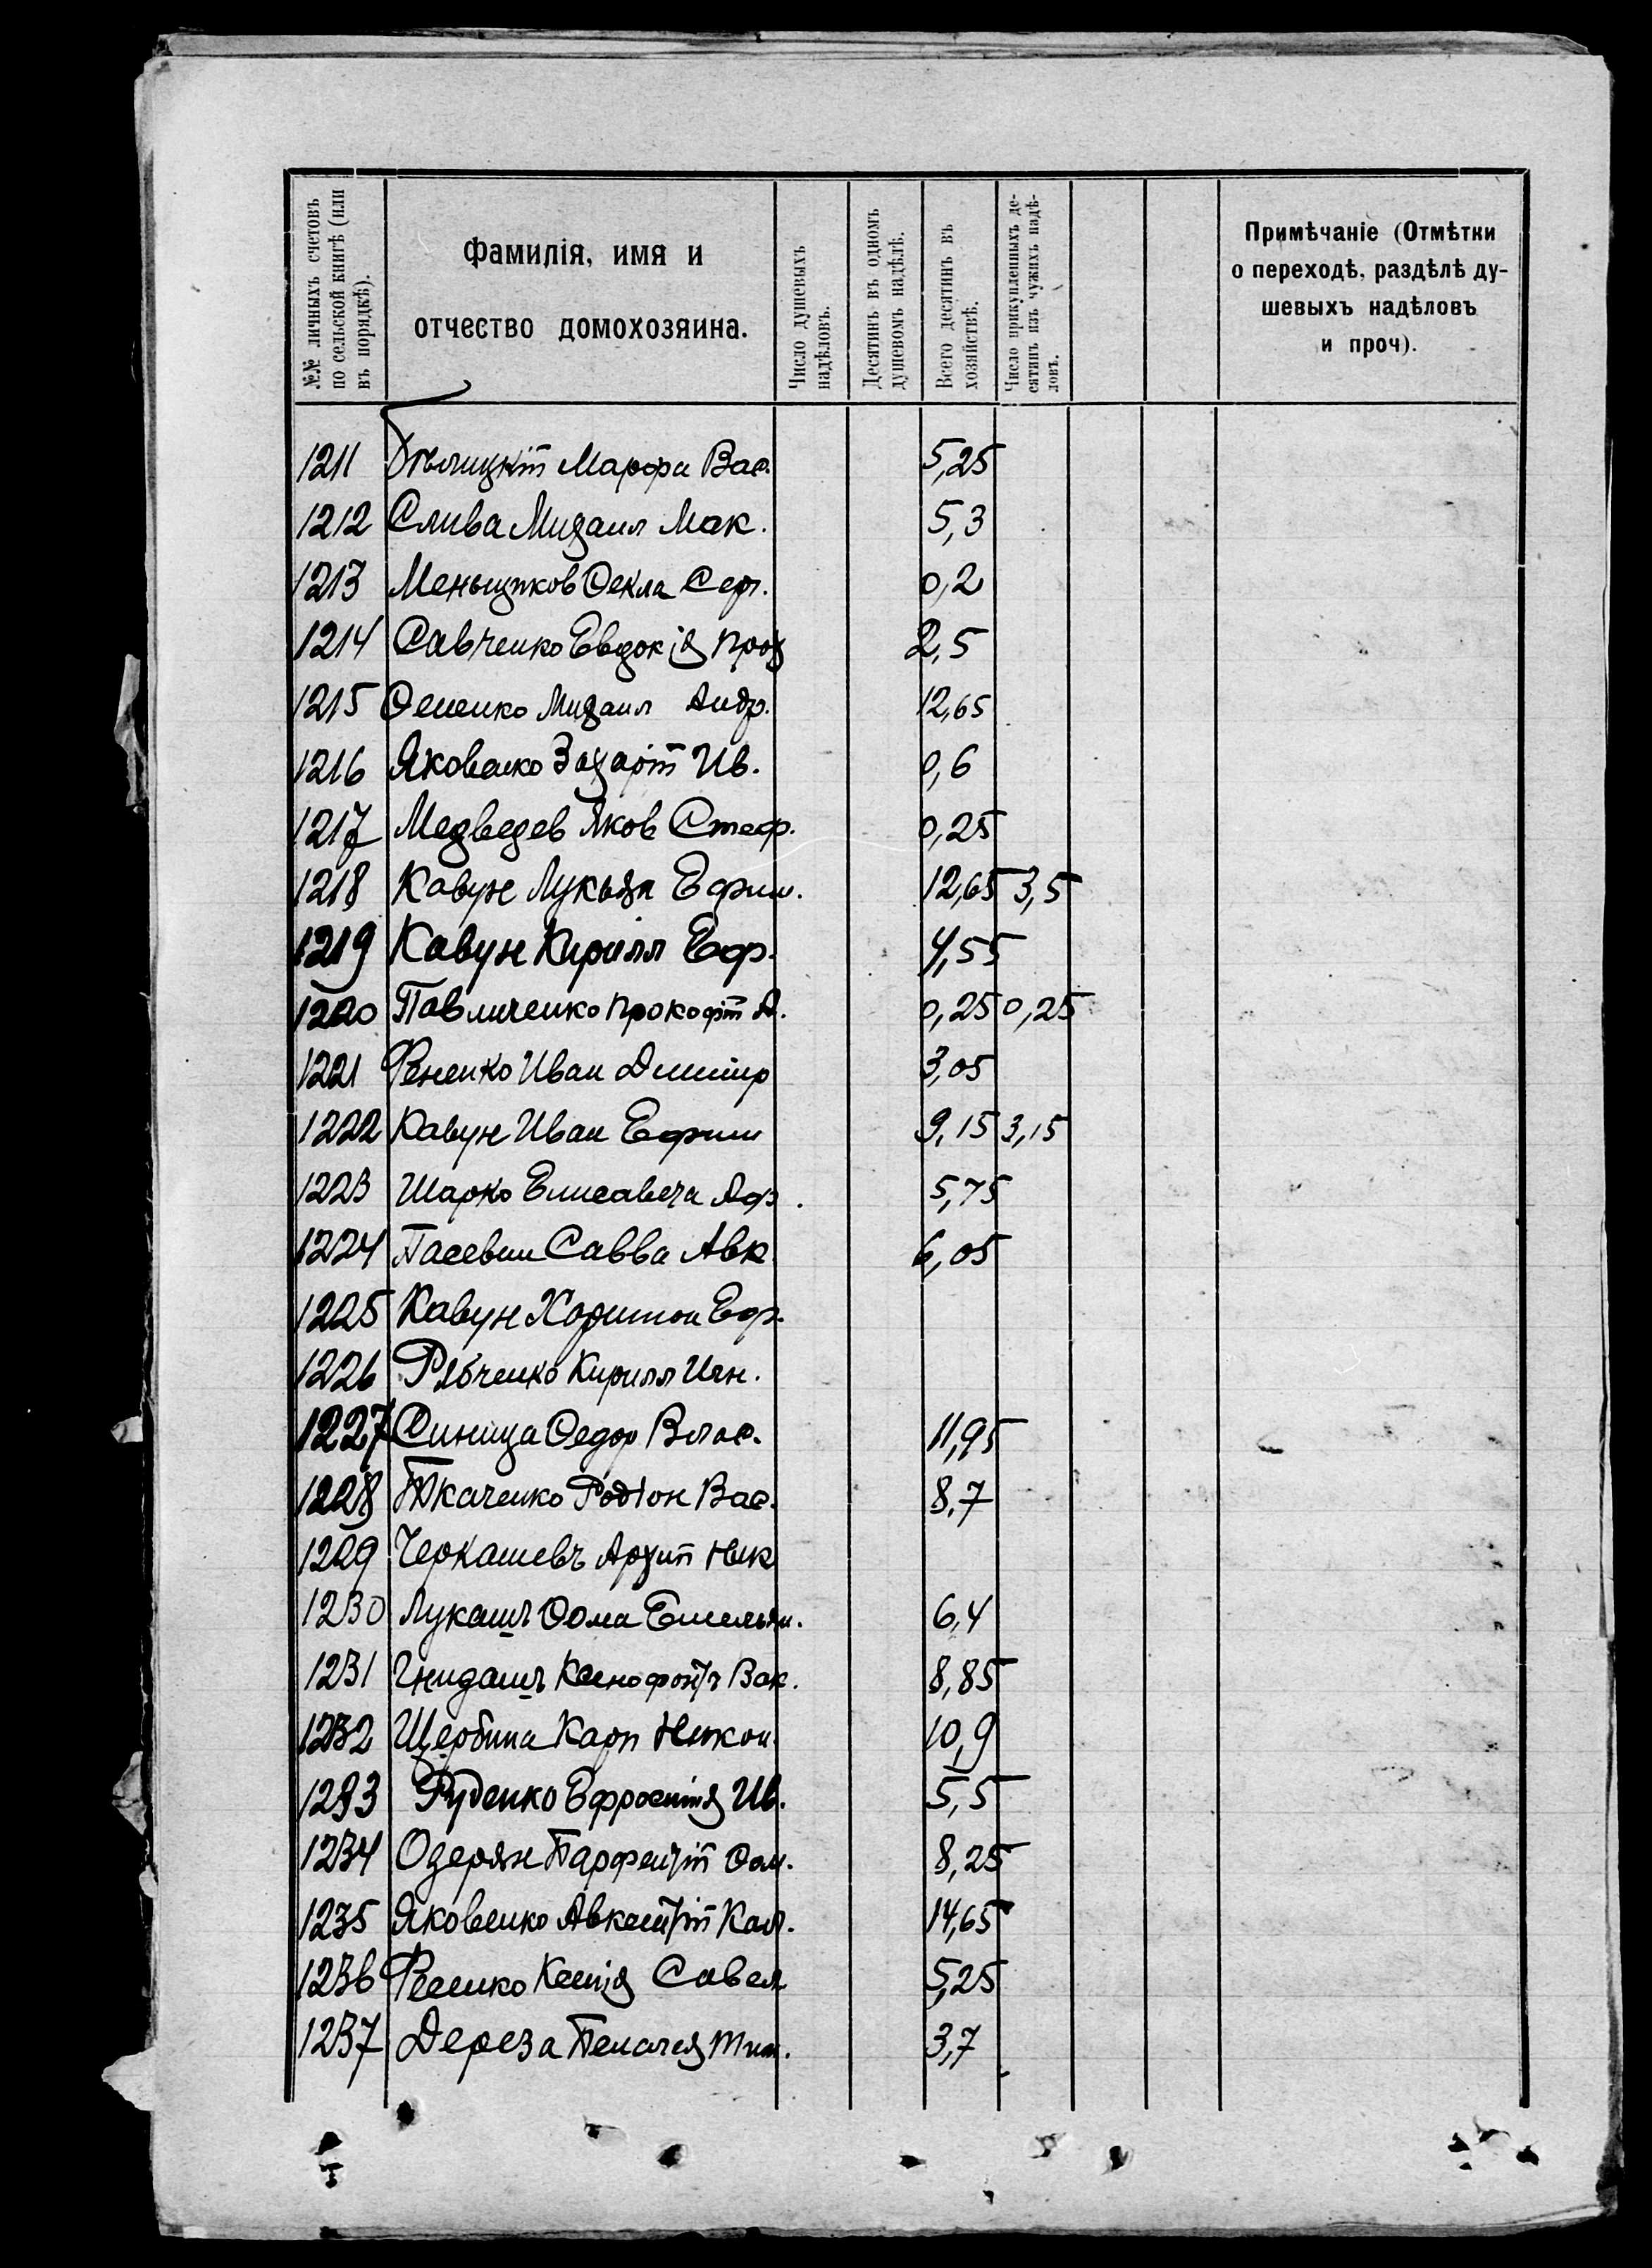 №№ личныхъ счетовъ
по сельской книгѣ (или
въ порядкѣ).
Фамилія, имя и
отчество домохозяина.
Число душевыхъ
надѣловъ.
Десятинъ въ одномъ
душевомъ надѣлѣ.
Всего десятинъ въ
хозяйствѣ.
Число прикупленныхъ де-
сятинъ изъ чужихъ надѣ-
ловъ.
Примѣчаніе (Отмѣтки
о переходѣ, раздѣлѣ ду-
шевыхъ надѣловъ
и проч).
1211 Бѣлицкій Марфа Вас. 5,25
1212 Слива Михаил Мак. 5,3
1213 Меньщиков Ѳекла Серг. 0,2
1214 Савченко Евдокія Прох 2,5
1215 Ѳененко Михаил Андр. 12,65
1216 Яковенко Захарій Ив. 0,6
1217 Медведев Яков Стеф. 0,25
1218 Кавун Лукьян Ефим. 12,65 3,5
1219 Кавун Кирилл Еф. 4,55
1220 Павличенко Прокофій А. 0,25 0,25
1221 Фененко Иван Дмитр 3,05
1222 Кавун Иван Ефим 9,15 3,15
1223 Шарко Елисавета Аф. 5,75
1224 Пасевин Савва Авк. 6,05
1225 Кавун Харитон Еф.
1226 Рябченко Кирилл Игн.
1227 Синица Ѳедор Влас. 11,95
1228 Ткаченко Родіон Вас. 8,7
1229 Черкашевъ Архип Ник
1230 Лукашъ Ѳома Емельян. 6,4
1231 Гнидашъ Ксенофонтъ Вак. 8,85
1232 Щербина Карп Никон. 10,9
1233 Руденко Ефросинія Ив. 5,5
1234 Озерян Парфентій Ѳом. 8,25
1235 Яковенко Авксентій Кал. 14,65
1236 Фененко Ксенія Савел. 5,25
1237 Дереза Пелагея Тим. 3,7